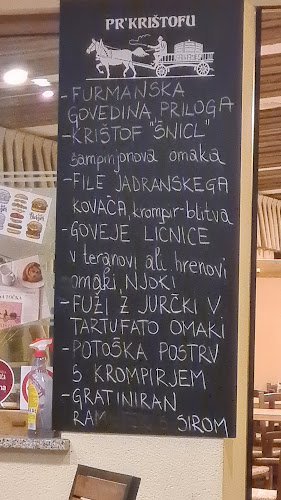 PR'KRIŠTOFU
- FURMANSKA
GOVEDINA, PRILOGA
- KRIŠTOF "ŠNICL"
šampinjonova omaka
- FILE JADRANSKEGA
KOVAČA, krompir-blitva
- GOVEJE LIČNICE
v teranovi ali hrenovi
omaki, NJOKI
- FUŽI Z JURČKI V
TARTUFATO OMAKI
- POTOŠKA POSTRV
S KROMPIRJEM
- GRATINIRAN
SIROM